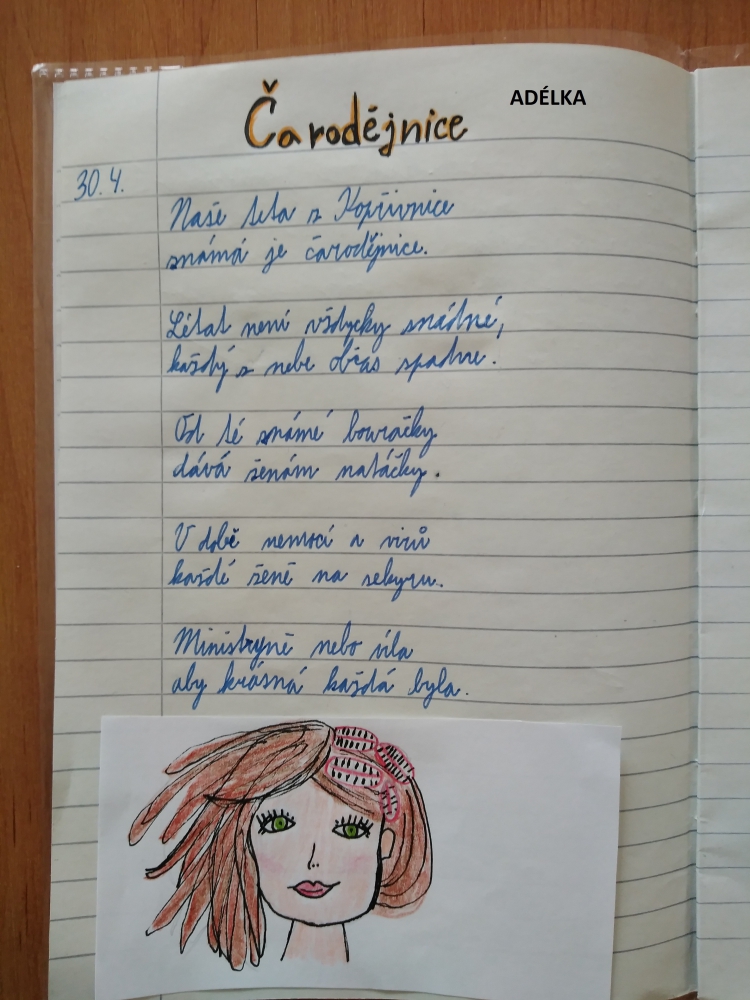 Čarodějnice
ADÉLKA
30. 4.
Naše teta z Kopřivnice
známá je čarodějnice.
Létat není vždycky snadné,
každý z nebe občas spadne.
Od té známé bouračky
dává ženám natáčky.
V době nemocí a virů
každé ženě na sekyru.
Ministryně nebo víla
aby krásná každá byla.